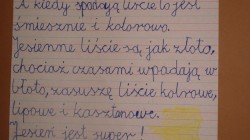 A kiedy spadają liście to jest
śmiesznie i kolorowo.
Jesienne liście są jak złoto,
chociaż czasami wpadają w
błoto, zasuszę liście kolorowe,
lipowe i kasztanowe.
Jesień jest super!